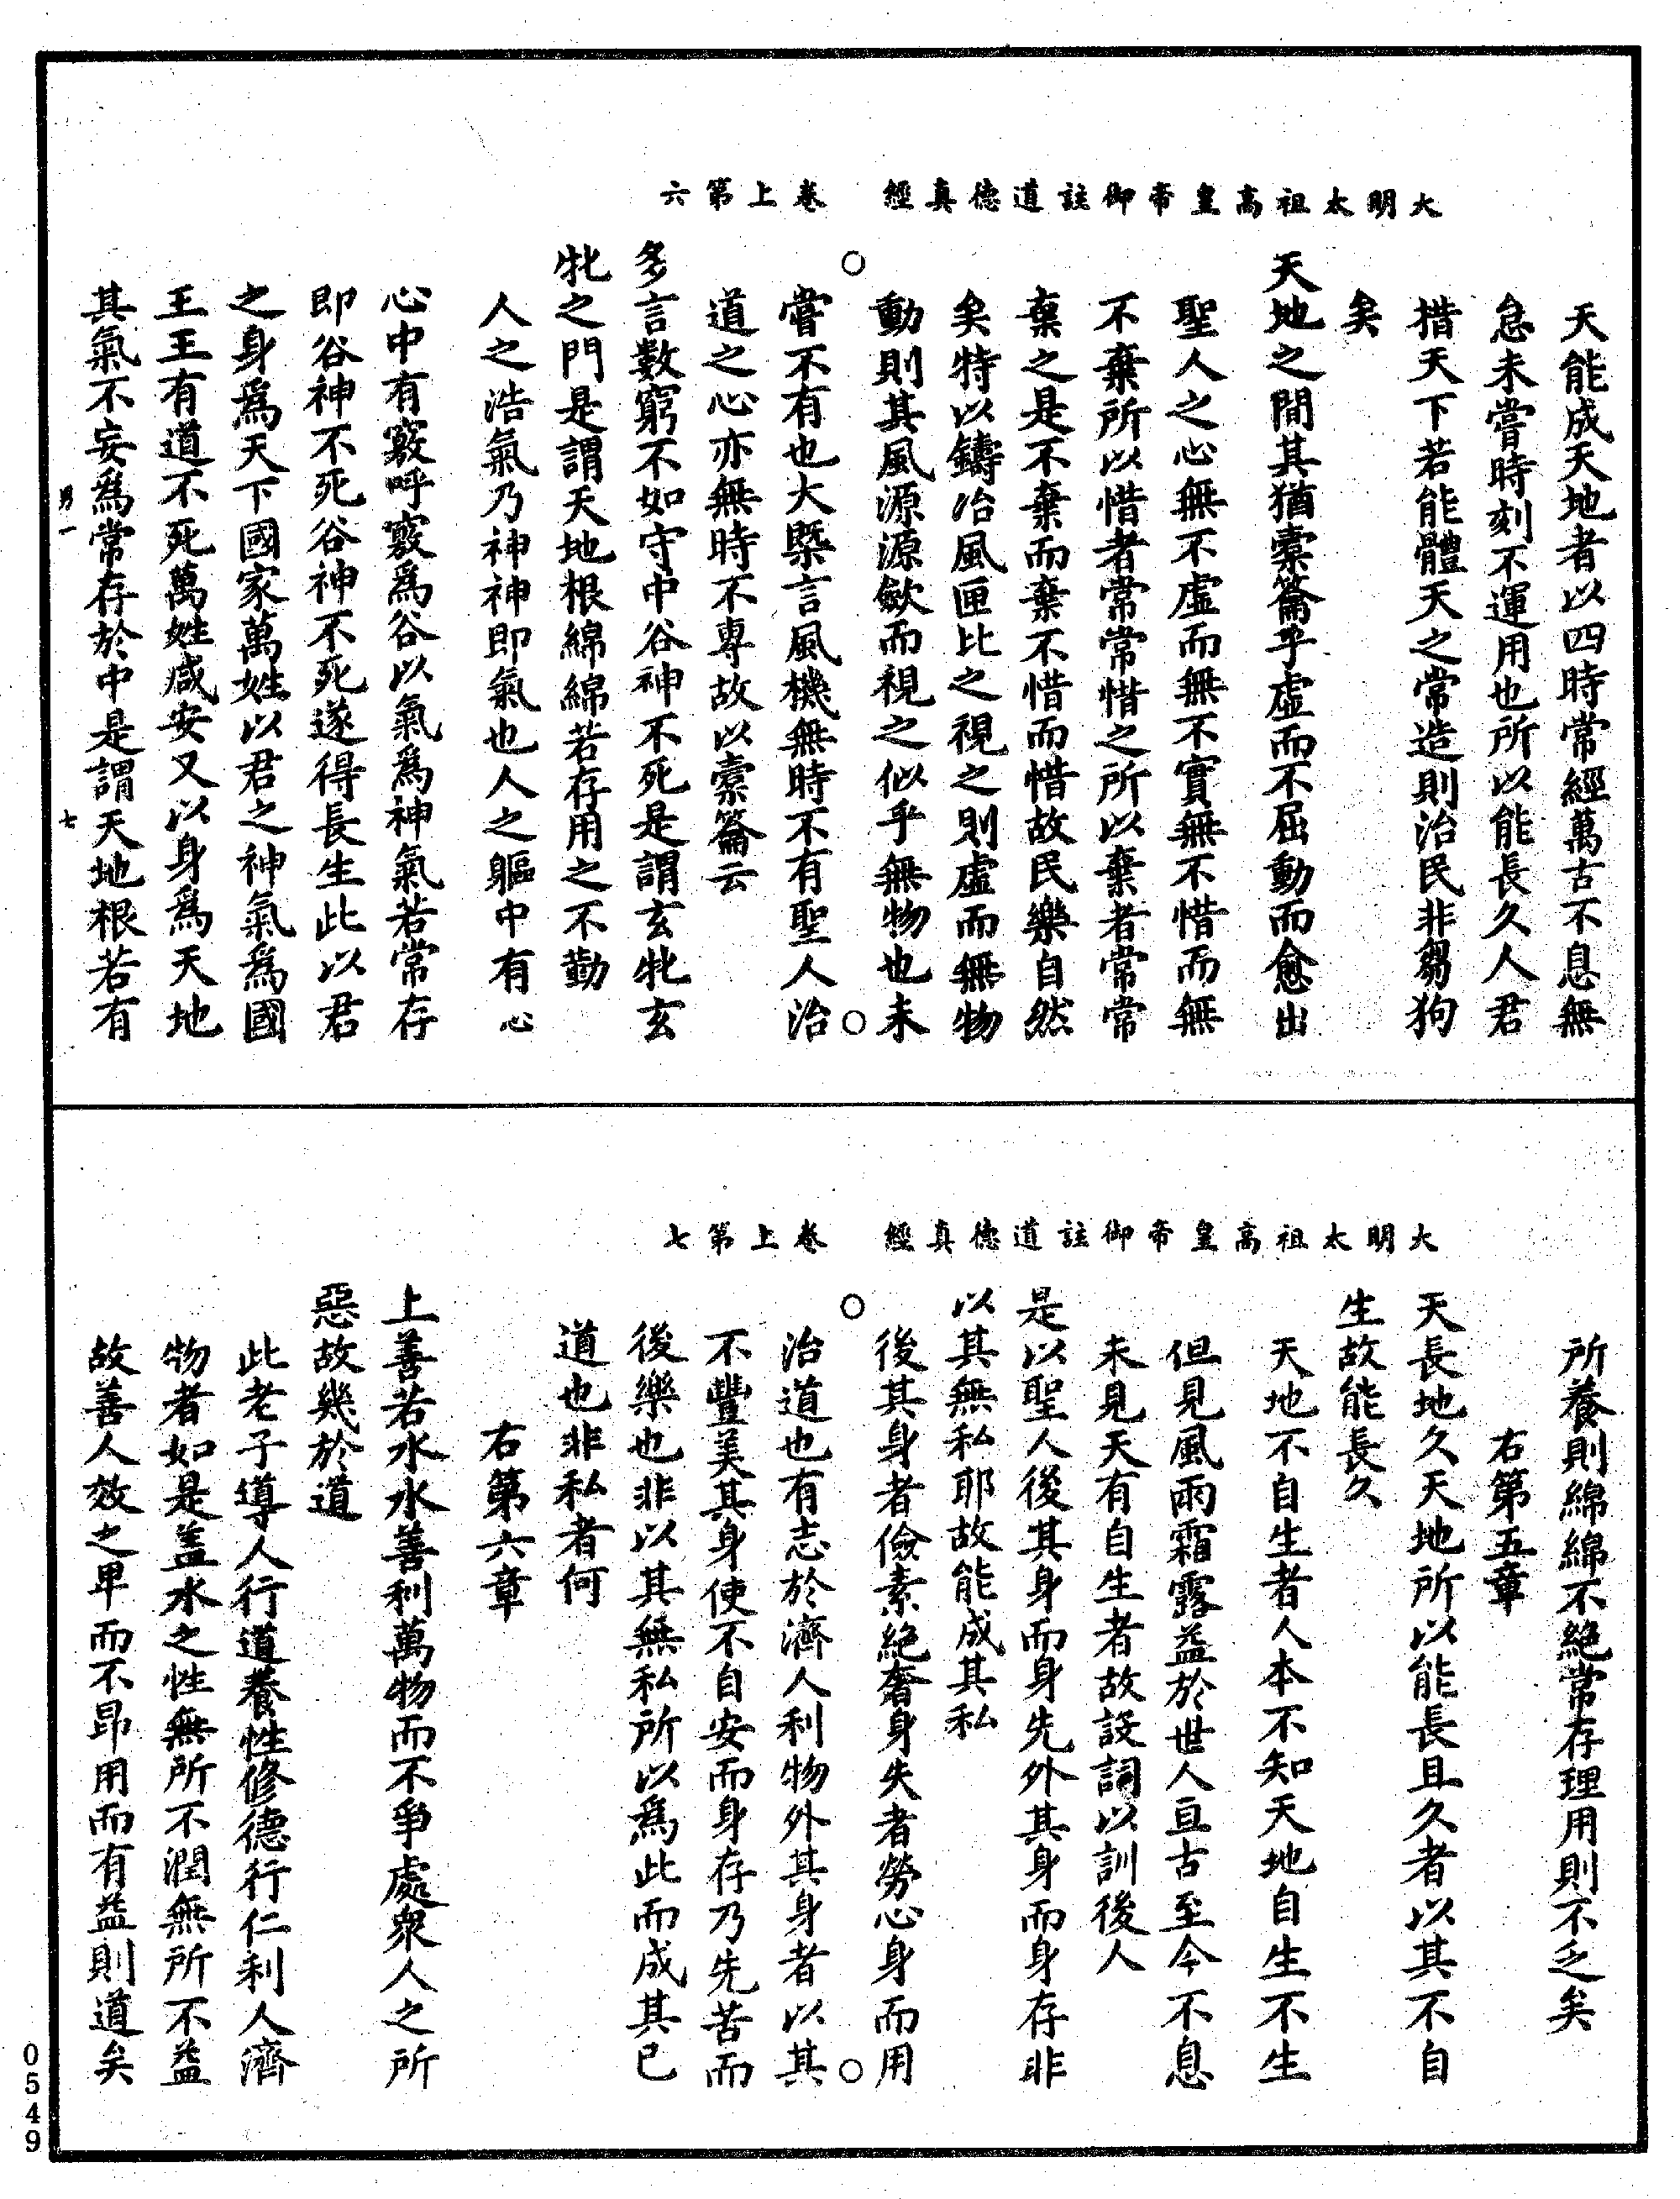 大明太祖高皇帝御註道德真經　卷上第六
天能成天地者以四時常經萬古不息無
怠未嘗時刻不運用也所以能長久人君
措天下若能體天之常造則治民非芻狗
矣
天地之間其猶橐籥乎虛而不屈動而愈出
聖人之心無不虛而無不實無不惜而無
不棄所以惜者常常惜之所以棄者常常
棄之是不棄而棄不惜而惜故民樂自然
矣特以鑄冶風匣比之視之則虛而無物
動則其風源源歛而視之似乎無物也未
嘗不有也大槩言風機無時不有聖人治
道之心亦無時不專故以橐籥云
多言數窮不如守中谷神不死是謂玄牝玄
牝之門是謂天地根綿綿若存用之不勤
人之浩氣乃神神即氣也人之軀中有心
心中有竅呼竅為谷以氣為神氣若常存
即谷神不死谷神不死遂得長生此以君
之身為天下國家萬姓以君之神氣為國
王王有道不死萬姓咸安又以身為天地
其氣不妄為常存於中是謂天地根若有
男一　七
大明太祖高皇帝御註道德真經　卷上第七
所養則綿綿不絕常存理用則不乏矣
右第五章
天長地久天地所以能長且久者以其不自
生故能長久
天地不自生者人本不知天地自生不生
但見風雨霜露益於世人亘古至今不息
未見天有自生者故設詞以訓後人
是以聖人後其身而身先外其身而身存非
以其無私耶故能成其私
後其身者儉素絕奢身失者勞心身而用
治道也有志於濟人利物外其身者以其
不豐美其身使不自安而身存乃先苦而
後樂也非以其無私所以為此而成其已
道也非私者何
右第六章
上善若水水善利萬物而不爭處衆人之所
惡故幾於道
此老子導人行道養性修德行仁利人濟
物者如是盖水之性無所不潤無所不益
故善人效之卑而不昂用而有益則道矣
0549